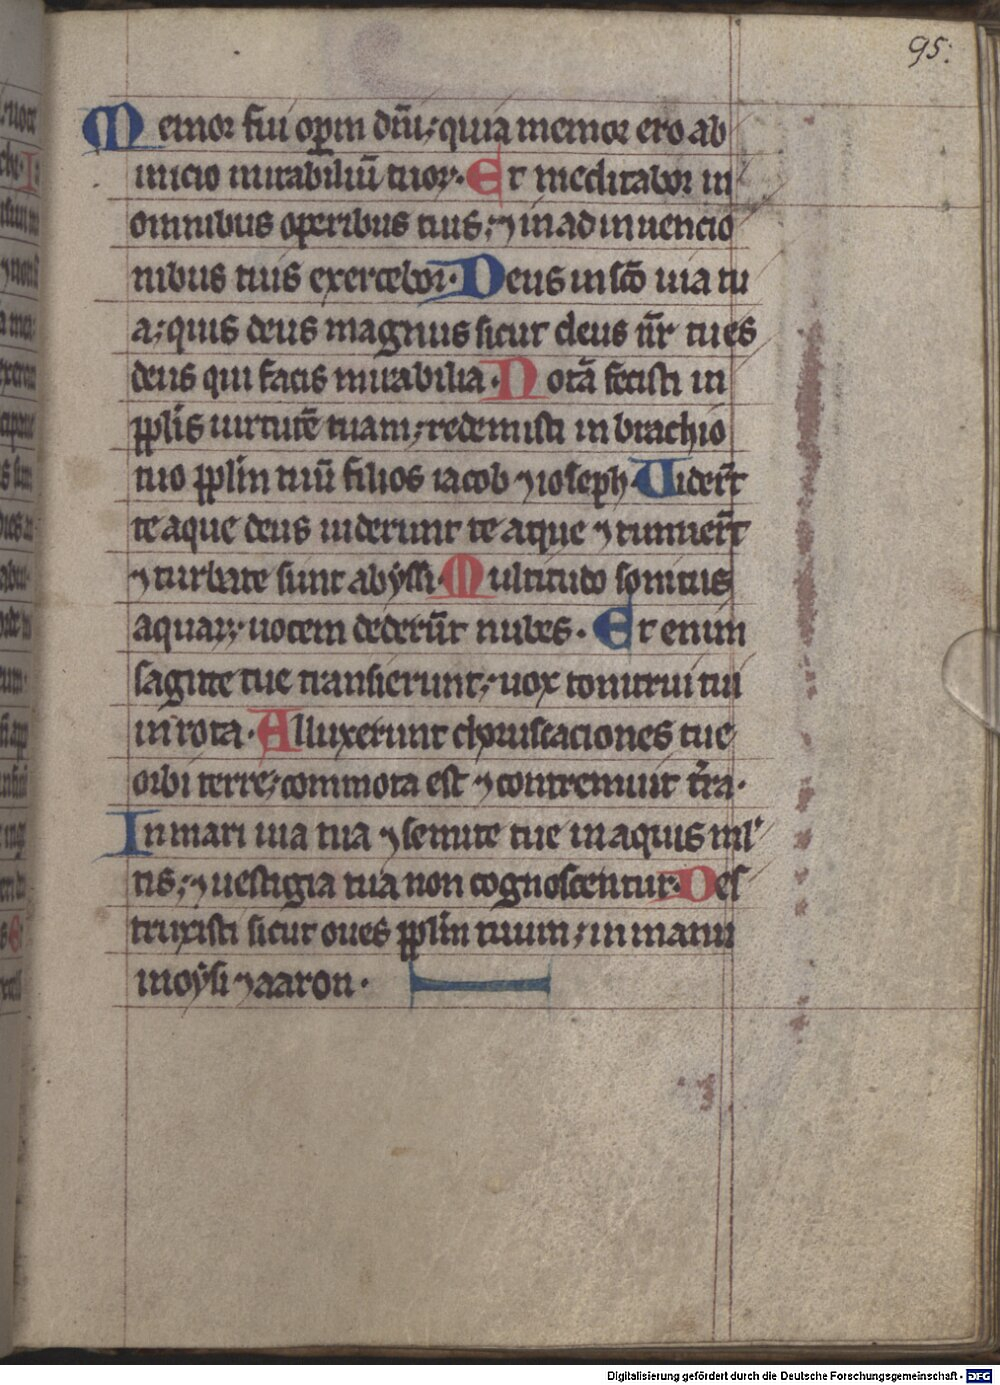 95.
Memor fui opm dñi; quia memor ero ab
inicio mirabiliũ tuoꝝ. Et meditabor in
omnibus operibus tuis; ⁊ in adinuencio
nibus tuis exercebor. Deus in sc̃o uia tu
a; quis deus magnus sicut deus nr̃ tu es
deus qui facis mirabilia. Notã fecisti in
ppl̃is uirtutẽ tuam; redemisti in brachio
tuo ppl̃m tuũ filios iacob ⁊ ioseph. Uider̃t
te aque deus uiderunt te aque ⁊ timuer̃t
⁊ turbate sunt abyssi. Multitudo sonitus
aquaꝝ; uocem dederũt nubes. Et enim
sagitte tue transierunt; uox tonitrui tui
in rota. Alluxerunt choruscaciones tue
orbi terre; commota est ⁊ contremuit t̃ra.
In mari uia tua ⁊ semite tue in aquis ml'
tis; ⁊ uestigia tua non cognoscentur. Des
truxisti sicut oues ppl̃m tuum; in manu
moysi ⁊ aaron.
Digitalisierung gefördert durch die Deutsche Forschungsgemeinschaft - DFG